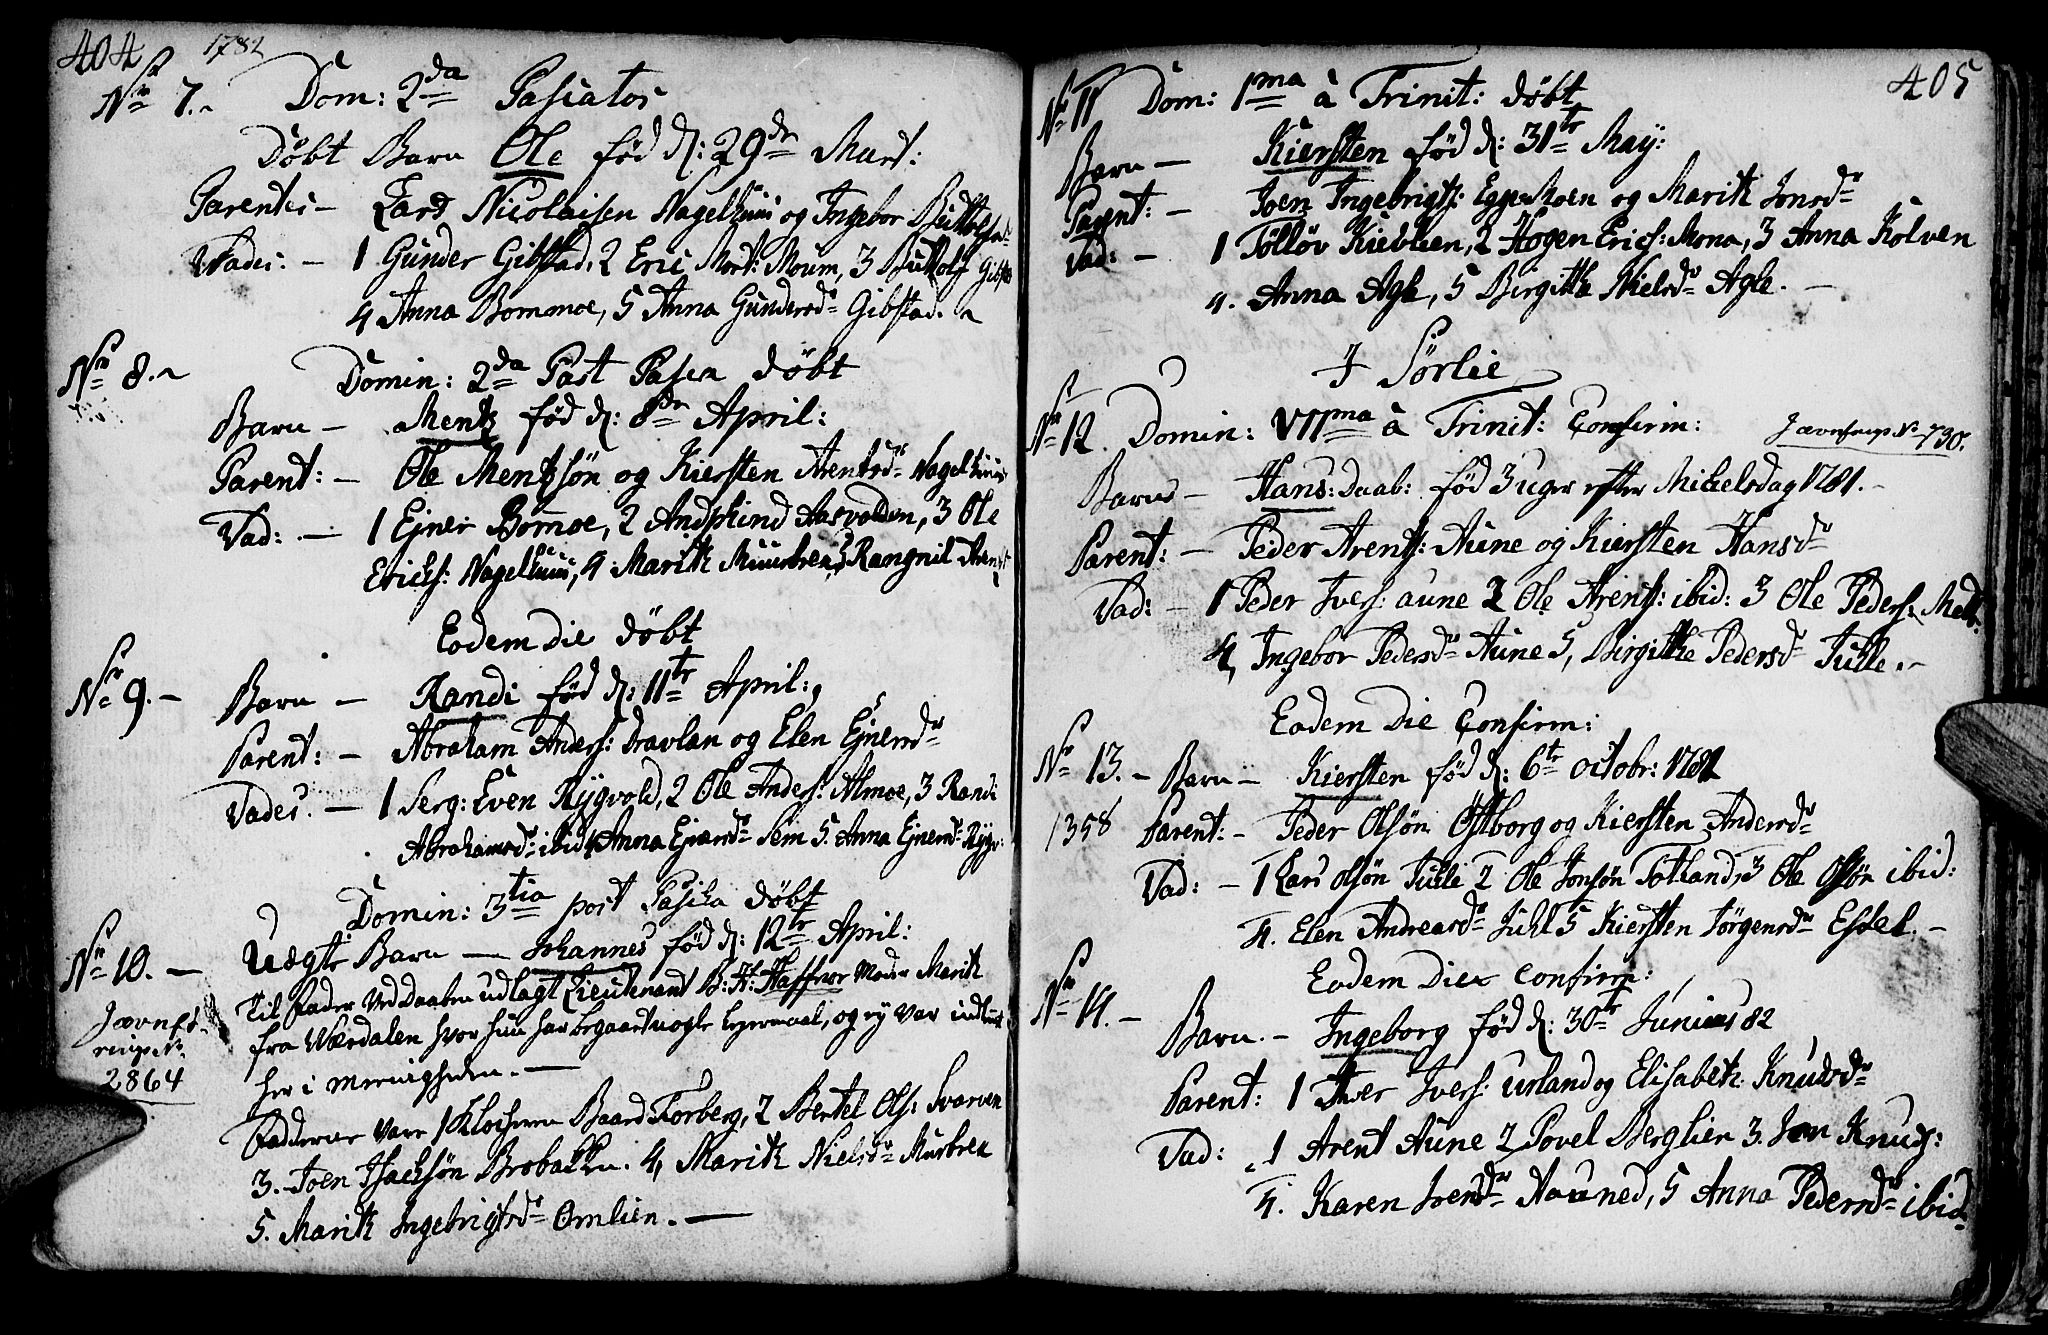 404 1782
No 7. Dom: 2da Pascatos
Døbt Barn Ole fød d: 29de Mart:
Parentes - Lars Nicolaisen Nagelhuus og Ingebor
Fades: - 1 Gunder Gibstad, 2 Eric Mort: Moum, 3 Buttolf Gibst
4 Anna Bommoe, 5 Anna Gundersd. Gibstad.
No 8. Domin: 2da Post Pascha døbt
Barn - Mentz fød d: 8de April:
Parent: - Ole Mentzsøn og Kiersten Arentsdr Nagelhuus
Fad: - 1 Ejner Bomoe, 2 Andphind Aasvolden, 3 Ole
Erichs: Nagelhuus, 4 Marith Muusbrek, 5 Rangnil
Eodem die døbt
No 9. - Barn - Randi fød d: 11te April:
Parent: - Abraham Anders: Dravlan og Elen Ejnersdr
Fades. - 1 Serg: Even Rygvold, 2 Ole Anders: Almoe, 3 Randi
Abrahamsdr ibid 4 Anna Ejnersdr Sem 5. Anna Ejnersdr Rygv:
Domin: 3tia post Pascha døbt
No 10. - Uægte Barn - Johannes fød d: 12te April:
Til Fader ved Daaben udlagt Lieutenant B: H: Haffner Moder Marith
fra Værdalen hvor hun har begaaet nogle Lejermaal, og ej var indtagt
her i Menigheden. -
Jævnf.
2864
Fadderne vare 1 Klocheren Baard Forberg, 2 Bertel Ols: Svarven
3. Joen Isachsøn Brobakken. 4, Marith Nielsdr Musbrek
5. Marith Ingebrigtsdr Omlien. -
405
No 11 Dom: 1ma à Trinit: døbt
Barn - Kiersten fød d: 31te May:
Parent: - Joen Ingebrigts: Eggemoen og Marith Jonsdr
Fad: - 1 Tølløv Kieblien, 2 Hogen Erics: Mona, 3 Anna Kolven
4. Anna Agle, 5 Birgithe Nielsdr Agle. -
I Sörlie
No 12. Domin: VIIma à Trinit: Confirm: 730.
Barns - Hans: Daab: fød 3 uger efter Mikelsdag 1781. -
Parent: - Peder Arents: Aune og Kiersten Hansdr
Fad: - 1 Peder Ivers: aune 2 Ole Arents: ibid: 3 Ole Peders:
4, Ingebor Pedersdr Aune 5, Birgithe Pedersdr Tulle. -
Eodem Die Confirm:
No 13. - Barn - Kiersten fød d: 6te octobr:
1358 Parent: - Peder Olsøn Østborg og Kiersten Andersdr
Fad: - 1 Lars olsøn Tulle 2 Ole Jonsøn Totland, 3 Ole Olsøn ibid:
4. Elen Andreasdr Juhl 5 Kiersten Jörgensdr Estel. -
Eodem Die confirm:
No 14. - Barn. - Ingeborg fød d: 30te Junius 82
Parent: 1 Iver Ivers: urland og Elisabeth Knudsdr
Fad: 1 Arent Aune 2 Povel Berglien 3. Jon Knuds:
4. Karen Joensdr Aauned, 5 Anna Pedersdr ibid